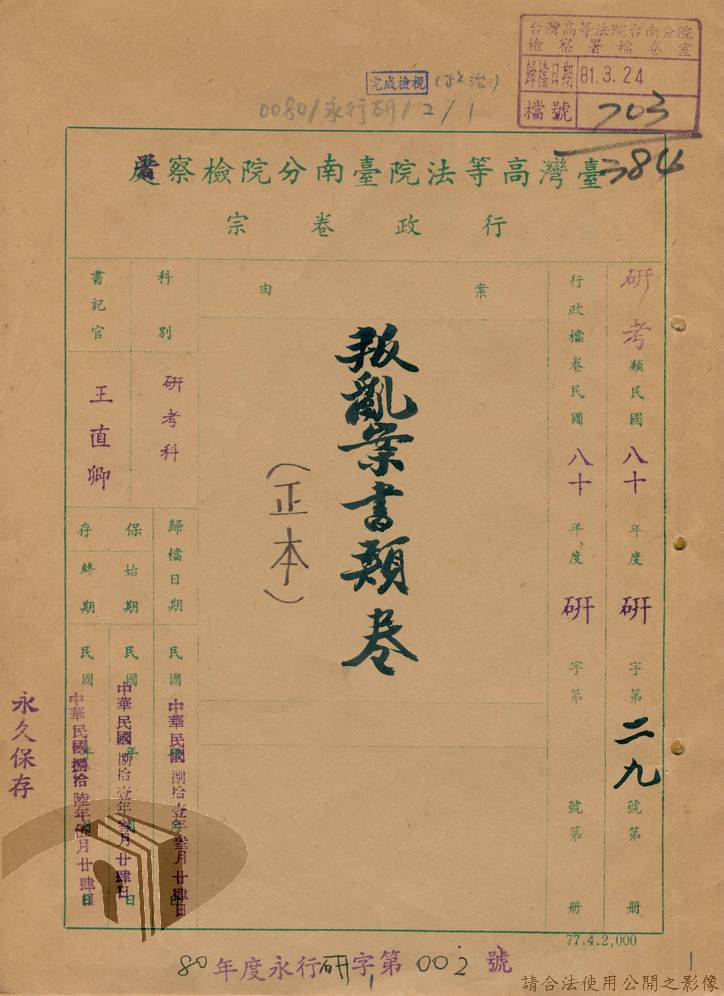 台灣高等法院台南分院
檢察署檔卷室
歸檔日期 81.3.24
檔號 703
384
完成檢視 (政治)
0080/永行研/2/1
臺灣高等法院臺南分院檢察署
行政卷宗
研考類民國八十年度研字第二九號第 册
行政檔卷民國八十年度研字第 號第 册
案由
叛亂案書類卷
(正本)
科別
研考科
書記官
王直卿
歸檔日期 民國
中華民國捌拾壹年叁月廿肆日
保存始期 民國
中華民國捌拾壹年叁月廿肆日
終期 民國
永久保存
77.4.2,000
80年度永行研字第002號
1
請合法使用公開之影像